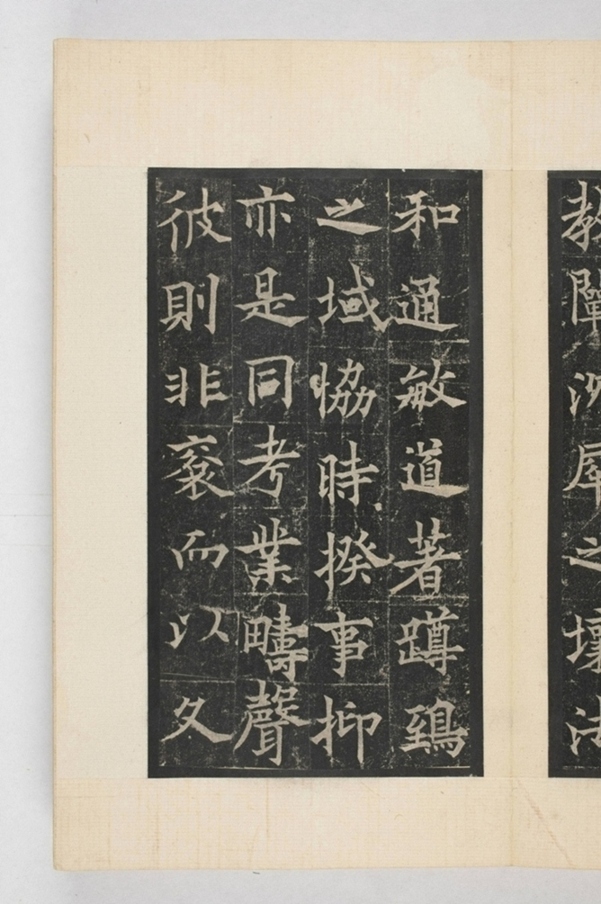 教闡犀之壤法
和通敏道著蹲鵄
之域協時揆事抑
亦是同考業疇聲
彼則非裒而以久